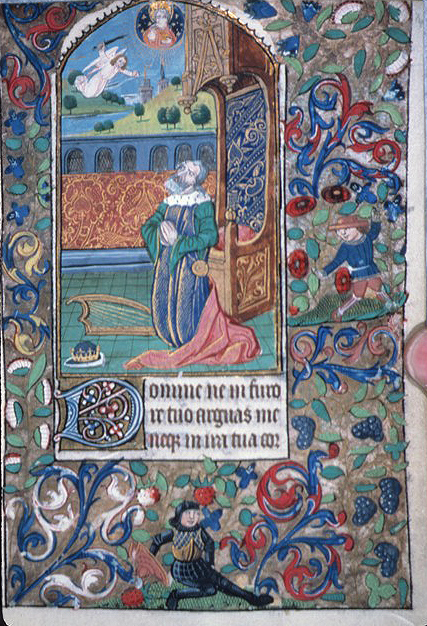 Domine ne in furo
re tuo arguas me
neq in ira tua cor